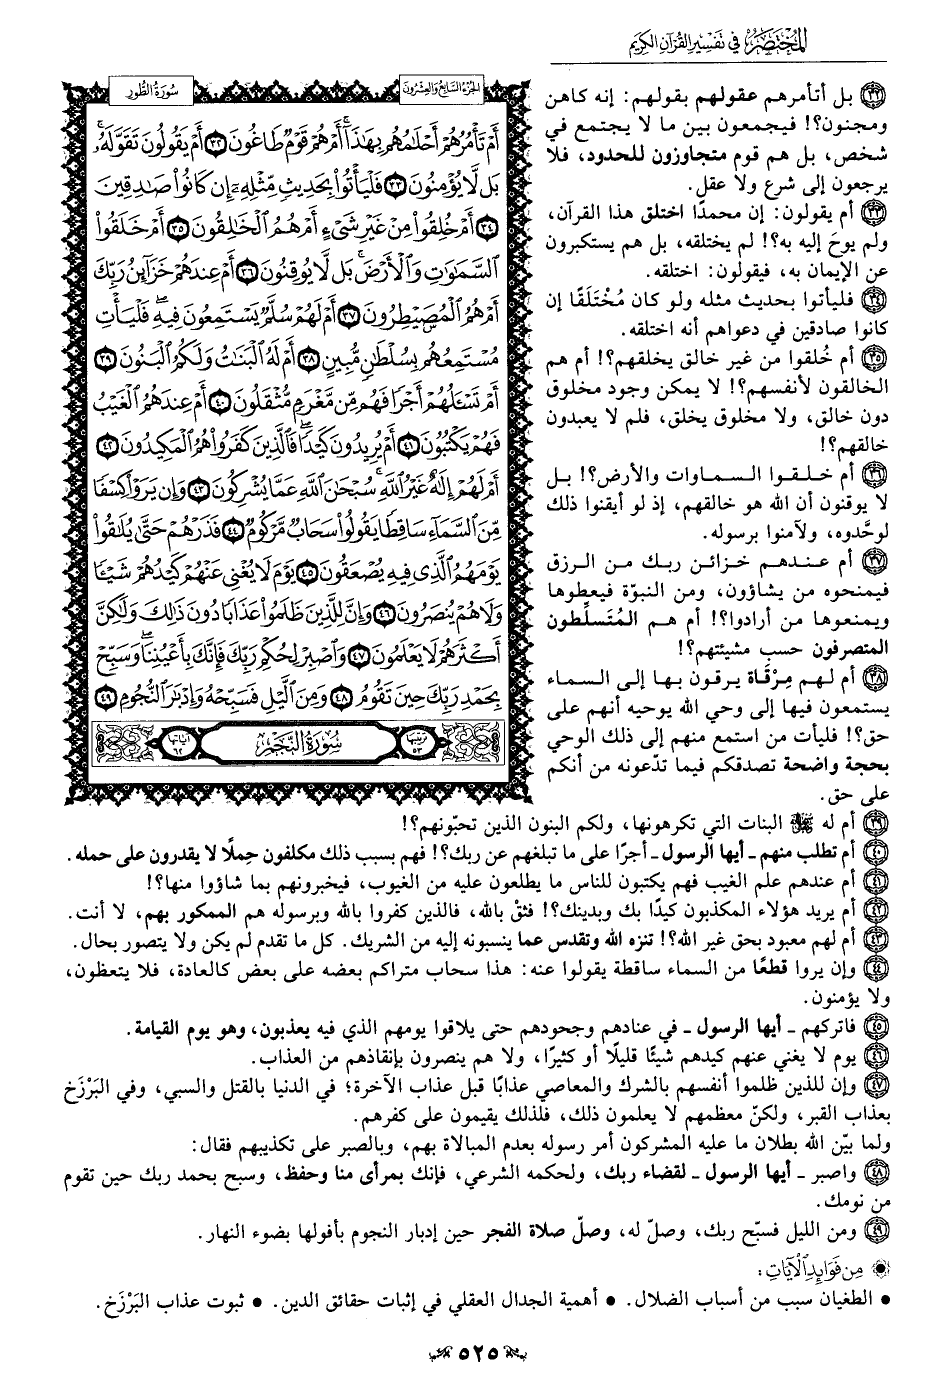 المختصر في تفسير القرآن الكريم
سورة الطور
الجزء السابع والعشرون
أَمْ تَأْمُرُهُمْ أَحْلَامُهُم بِهَٰذَا أَمْ هُمْ قَوْمٌ طَاغُونَ ٣٢ أَمْ يَقُولُونَ تَقَوَّلَهُ
بَل لَّا يُؤْمِنُونَ ٣٣ فَلْيَأْتُوا بِحَدِيثٍ مِّثْلِهِ إِن كَانُوا صَادِقِينَ
٣٤ أَمْ خُلِقُوا مِنْ غَيْرِ شَيْءٍ أَمْ هُمُ الْخَالِقُونَ ٣٥ أَمْ خَلَقُوا
السَّمَاوَاتِ وَالْأَرْضَ بَل لَّا يُوقِنُونَ ٣٦ أَمْ عِندَهُمْ خَزَائِنُ رَبِّكَ
أَمْ هُمُ الْمُصَيْطِرُونَ ٣٧ أَمْ لَهُمْ سُلَّمٌ يَسْتَمِعُونَ فِيهِ فَلْيَأْتِ
مُسْتَمِعُهُم بِسُلْطَانٍ مُّبِينٍ ٣٨ أَمْ لَهُ الْبَنَاتُ وَلَكُمُ الْبَنُونَ ٣٩
أَمْ تَسْأَلُهُمْ أَجْرًا فَهُم مِّن مَّغْرَمٍ مُّثْقَلُونَ ٤٠ أَمْ عِندَهُمُ الْغَيْبُ
فَهُمْ يَكْتُبُونَ ٤١ أَمْ يُرِيدُونَ كَيْدًا فَالَّذِينَ كَفَرُوا هُمُ الْمَكِيدُونَ ٤٢
أَمْ لَهُمْ إِلَٰهٌ غَيْرُ اللَّهِ سُبْحَانَ اللَّهِ عَمَّا يُشْرِكُونَ ٤٣ وَإِن يَرَوْا كِسْفًا
مِّنَ السَّمَاءِ سَاقِطًا يَقُولُوا سَحَابٌ مَّرْكُومٌ ٤٤ فَذَرْهُمْ حَتَّىٰ يُلَاقُوا
يَوْمَهُمُ الَّذِي فِيهِ يُصْعَقُونَ ٤٥ يَوْمَ لَا يُغْنِي عَنْهُمْ كَيْدُهُمْ شَيْئًا
وَلَا هُمْ يُنصَرُونَ ٤٦ وَإِنَّ لِلَّذِينَ ظَلَمُوا عَذَابًا دُونَ ذَٰلِكَ وَلَٰكِنَّ
أَكْثَرَهُمْ لَا يَعْلَمُونَ ٤٧ وَاصْبِرْ لِحُكْمِ رَبِّكَ فَإِنَّكَ بِأَعْيُنِنَا وَسَبِّحْ
بِحَمْدِ رَبِّكَ حِينَ تَقُومُ ٤٨ وَمِنَ اللَّيْلِ فَسَبِّحْهُ وَإِدْبَارَ النُّجُومِ ٤٩
ترتيبها ٥٣ سورة النجم آياتها ٦٢
٣٢ بل أتأمرهم عقولهم بقولهم: إنه كاهن
ومجنون؟! فيجمعون بين ما لا يجتمع في
شخص، بل هم قوم متجاوزون للحدود، فلا
يرجعون إلى شرع ولا عقل.
٣٣ أم يقولون: إن محمدًا اختلق هذا القرآن،
ولم يوحَ إليه به؟! لم يختلقه، بل هم يستكبرون
عن الإيمان به، فيقولون: اختلقه.
٣٤ فليأتوا بحديث مثله ولو كان مُخْتَلَقًا إن
كانوا صادقين في دعواهم أنه اختلقه.
٣٥ أم خُلقوا من غير خالق يخلقهم؟! أم هم
الخالقون لأنفسهم؟! لا يمكن وجود مخلوق
دون خالق، ولا مخلوق يخلق، فلم لا يعبدون
خالقهم؟!
٣٦ أم خلقوا السماوات والأرض؟! بل
لا يوقنون أن الله هو خالقهم، إذ لو أيقنوا ذلك
لوحَّدوه، ولآمنوا برسوله.
٣٧ أم عندهم خزائن ربك من الرزق
فيمنحوه من يشاؤون، ومن النبوّة فيعطوها
ويمنعوها من أرادوا؟! أم هم المُتَسلِّطون
المتصرفون حسب مشيئتهم؟!
٣٨ أم لهم مِرْقَاة يرقون بها إلى السماء
يستمعون فيها إلى وحي الله يوحيه أنهم على
حق؟! فليأت من استمع منهم إلى ذلك الوحي
بحجة واضحة تصدقكم فيما تدّعونه من أنكم
على حق.
٣٩ أم له ﷻ البنات التي تكرهونها، ولكم البنون الذين تحبّونهم؟!
٤٠ أم تطلب منهم ـ أيها الرسول ـ أجرًا على ما تبلغهم عن ربك؟! فهم بسبب ذلك مكلفون حِملًا لا يقدرون على حمله.
٤١ أم عندهم علم الغيب فهم يكتبون للناس ما يطلعون عليه من الغيوب، فيخبرونهم بما شاؤوا منها؟!
٤٢ أم يريد هؤلاء المكذبون كيدًا بك وبدينك؟! فثقْ بالله، فالذين كفروا بالله وبرسوله هم الممكور بهم، لا أنت.
٤٣ أم لهم معبود بحق غير الله؟! تنزه الله وتقدس عما ينسبونه إليه من الشريك. كل ما تقدم لم يكن ولا يتصور بحال.
٤٤ وإن يروا قطعًا من السماء ساقطة يقولوا عنه: هذا سحاب متراكم بعضه على بعض كالعادة، فلا يتعظون،
ولا يؤمنون.
٤٥ فاتركهم ـ أيها الرسول ـ في عنادهم وجحودهم حتى يلاقوا يومهم الذي فيه يعذبون، وهو يوم القيامة.
٤٦ يوم لا يغني عنهم كيدهم شيئًا قليلًا أو كثيرًا، ولا هم ينصرون بإنقاذهم من العذاب.
٤٧ وإن للذين ظلموا أنفسهم بالشرك والمعاصي عذابًا قبل عذاب الآخرة؛ في الدنيا بالقتل والسبي، وفي البَرْزَخ
بعذاب القبر، ولكنّ معظمهم لا يعلمون ذلك، فلذلك يقيمون على كفرهم.
ولما بيّن الله بطلان ما عليه المشركون أمر رسوله بعدم المبالاة بهم، وبالصبر على تكذيبهم فقال:
٤٨ واصبر ـ أيها الرسول ـ لقضاء ربك، ولحكمه الشرعي، فإنك بمرأى منا وحفظ، وسبح بحمد ربك حين تقوم
من نومك.
٤٩ ومن الليل فسبّح ربك، وصل له، وصلّ صلاة الفجر حين إدبار النجوم بأفولها بضوء النهار.
من فوائد الآيات:
• الطغيان سبب من أسباب الضلال. • أهمية الجدال العقلي في إثبات حقائق الدين. • ثبوت عذاب البَرْزَخ.
٥٢٥